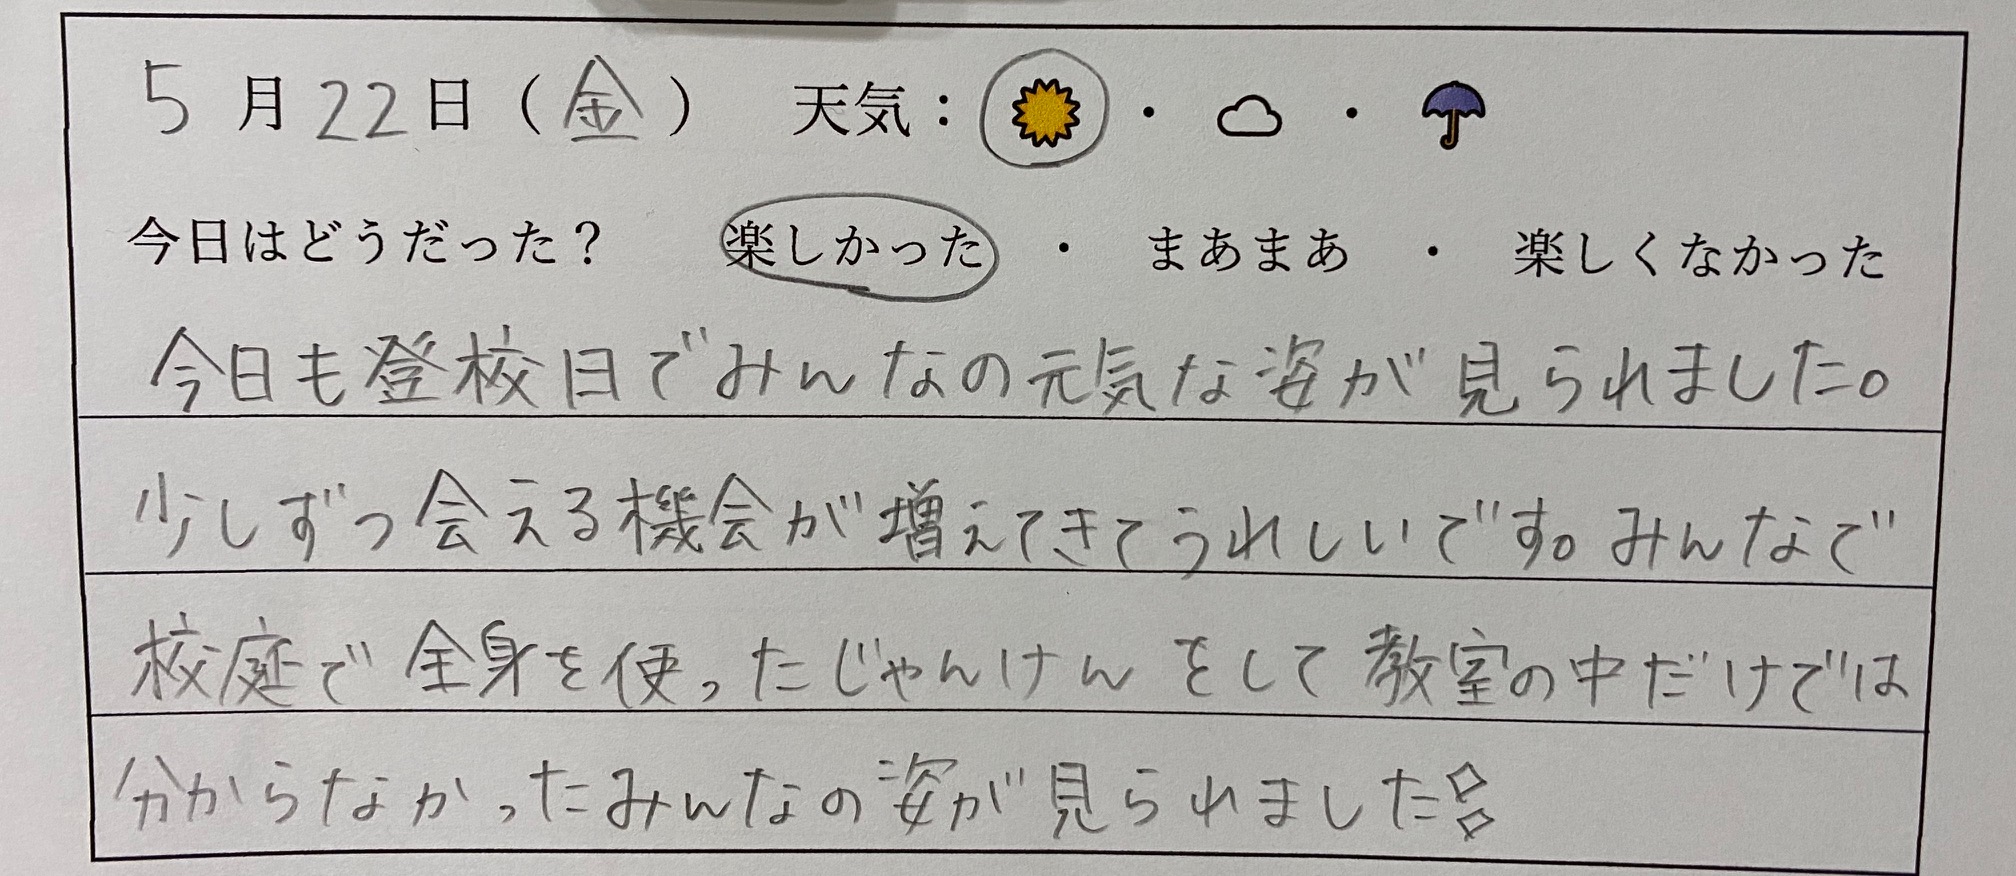 5月22日（金） 天気：☀・☁・☂
今日はどうだった？ 楽しかった ・ まあまあ ・ 楽しくなかった
今日も登校日でみんなの元気な姿が見られました。
少しずつ会える機会が増えてきてうれしいです。みんなで
校庭で全身を使ったじゃんけんをして教室の中だけでは
分からなかったみんなの姿が見られました